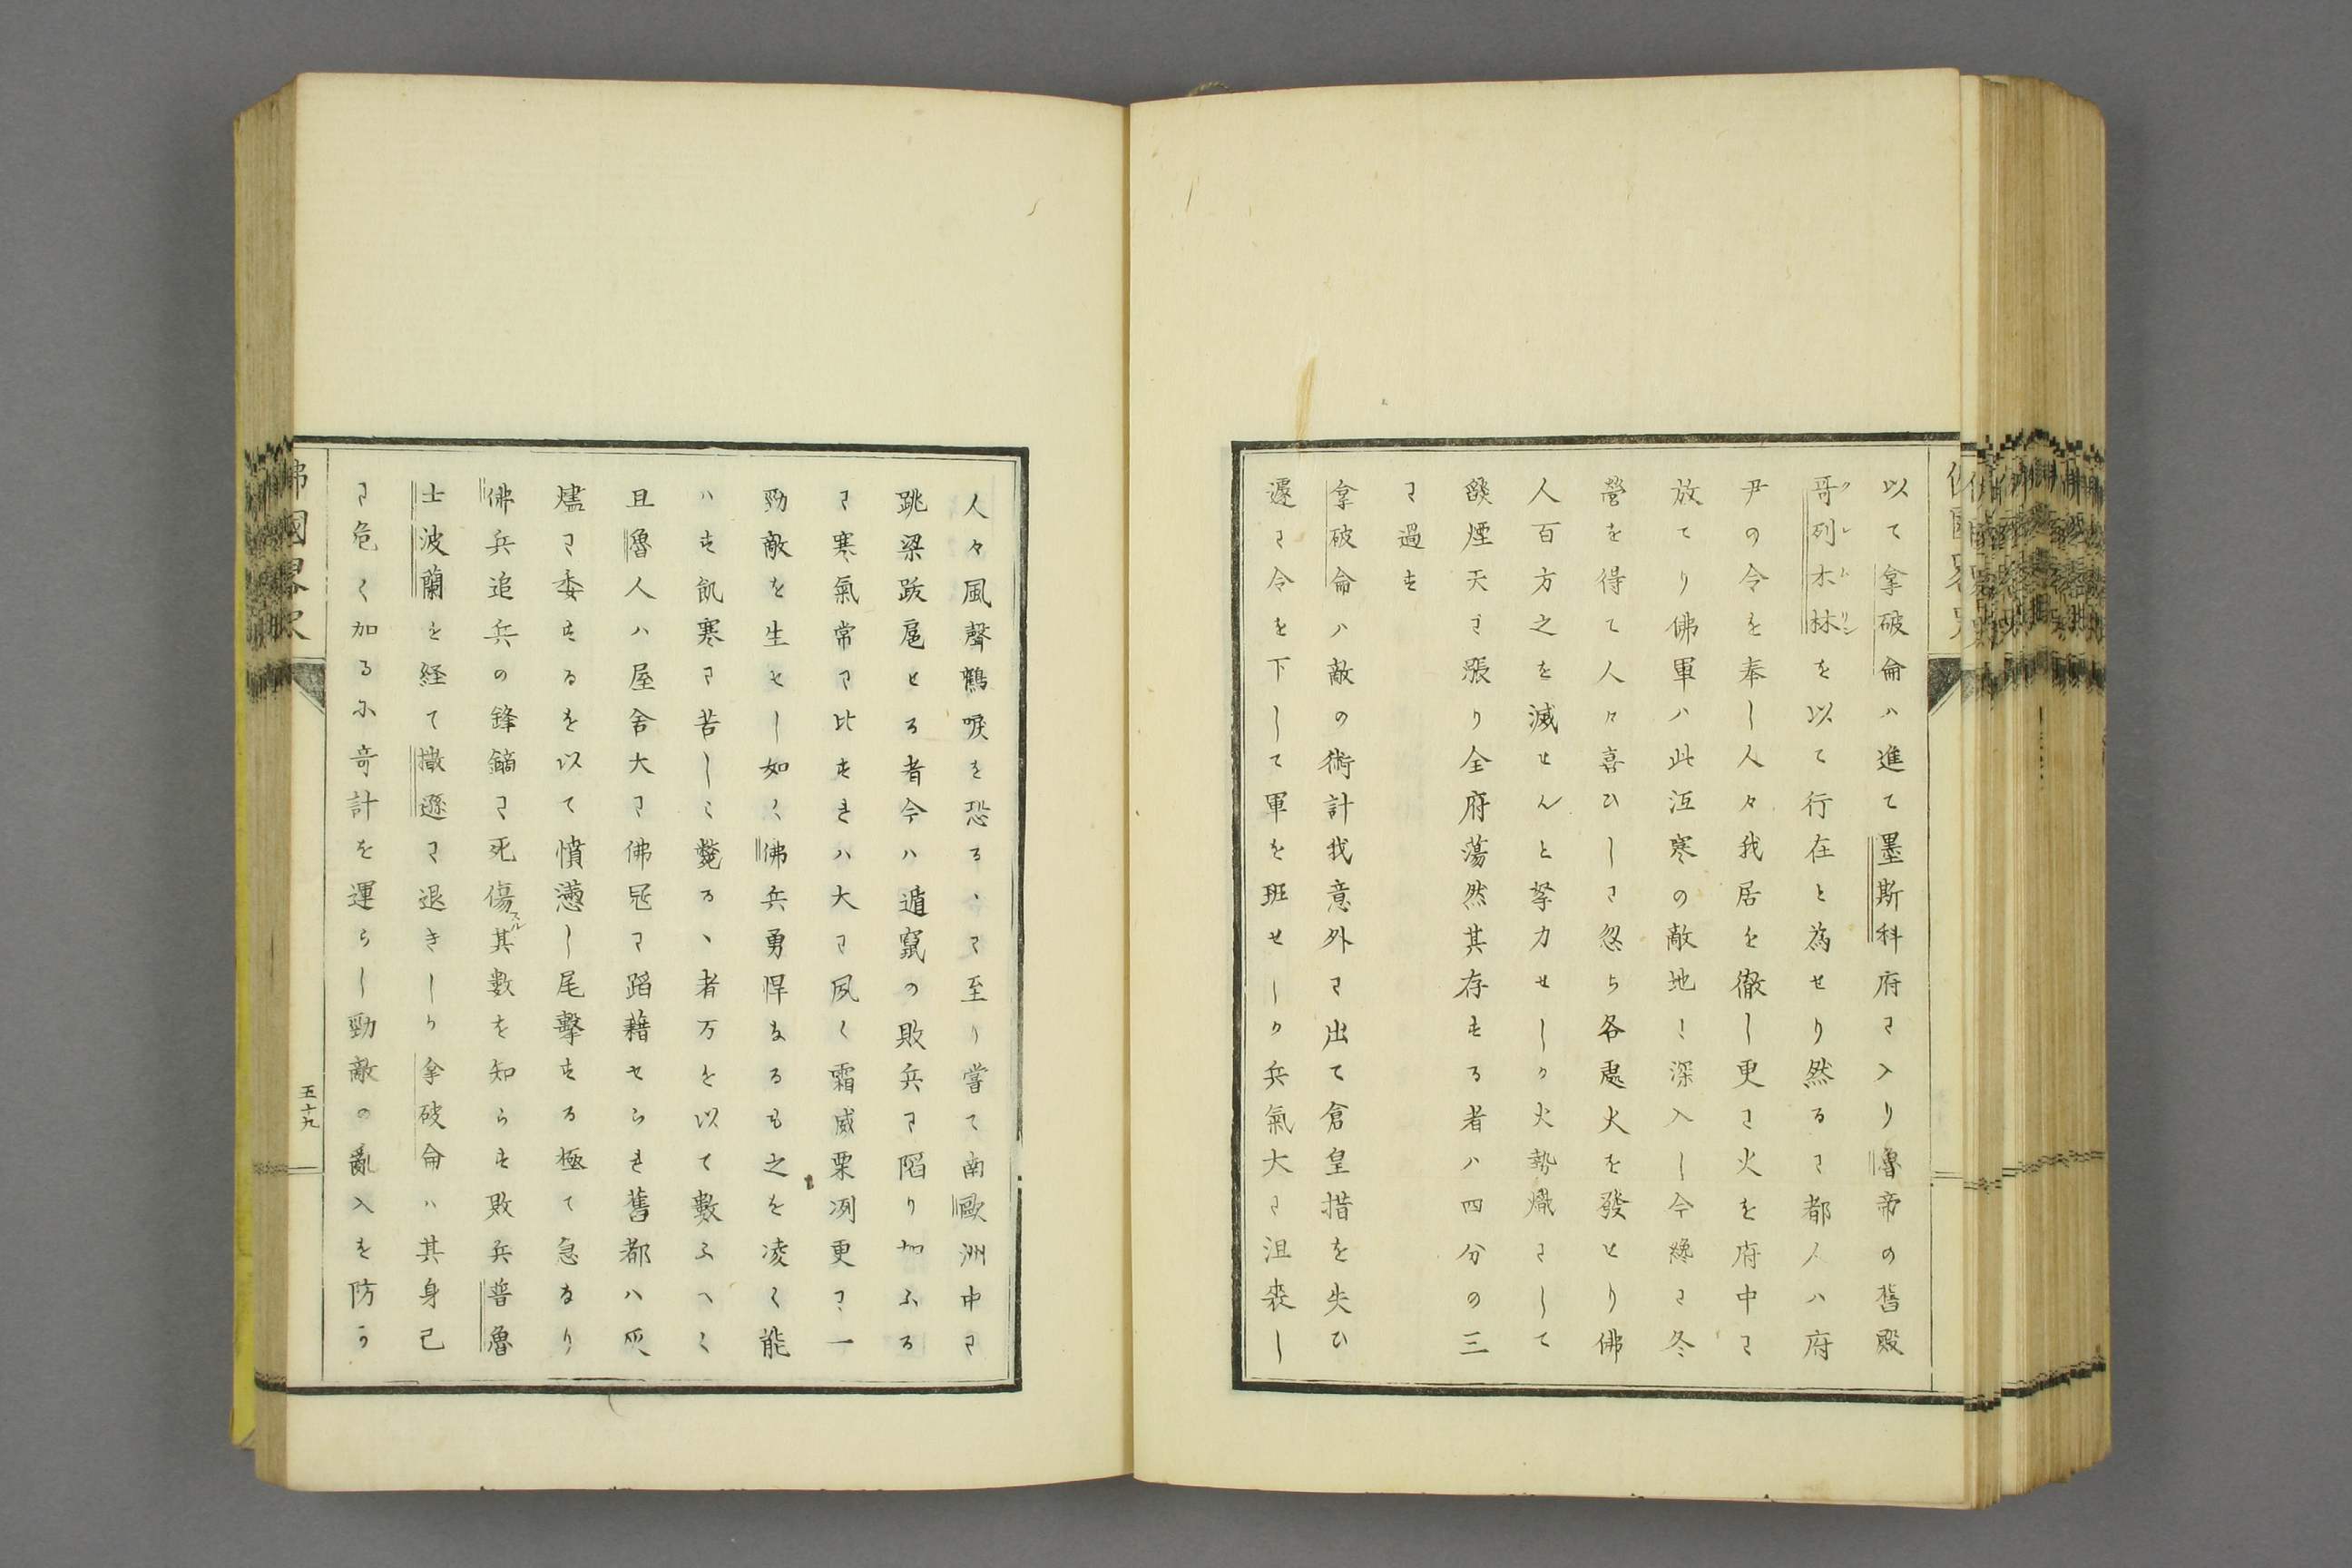 以て拿破侖ハ進て墨斯科府に入り魯帝の舊殿
哥列木林を以て行在と為せり然るに都人ハ府
クレムリン
尹の令を奉し人々我居を徹し更に火を府中に
放てり佛軍ハ此冱寒の敵地に深入し今纔に冬
營を得て人々喜ひしに忽ち各處火を發せり佛
人百方之を滅せんと拏力せしか火勢熾にして
燄煙天に漲り全府蕩然其存する者ハ四分の三
に過す
拿破侖ハ敵の術計我意外に出て倉皇措を失ひ
遽に令を下して軍を班せしか兵氣大に沮喪し
人々風聲鶴唳を恐るゝに至り嘗て南歐洲中に
跳梁跋扈せる者今ハ遁竄の敗兵に陷り加ふる
に寒氣常に比すれハ大に夙く霜威栗冽更に一
勁敵を生せし如く佛兵勇悍なるも之を凌く能
ハす飢寒に苦しく斃るゝ者万を以て數ふへく
且魯人ハ屋舍大に佛冦に蹈藉せられ舊都ハ灰
燼に委するを以て憤懣し尾擊する極て急なり
佛兵追兵の鋒鏑に死傷スル其數を知らす敗兵普魯
士波蘭を経て撒遜に退きしか拿破侖ハ其身已
に危く加るに奇計を運らし勁敵の亂入を防か
佛國畧史
五十九